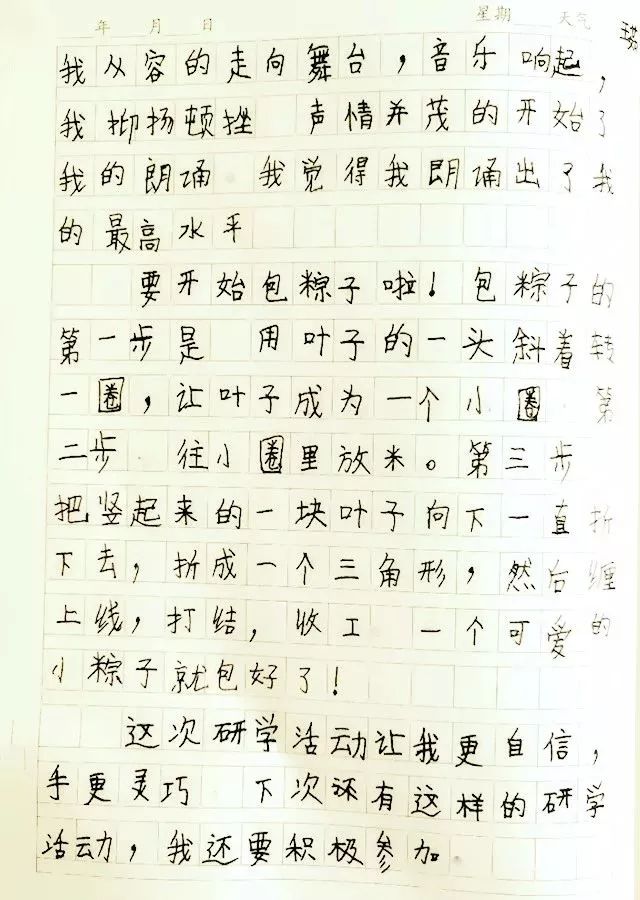 年 月 日 星期 天气
我从容的走向舞台，音乐响起，
我抑扬顿挫 声情并茂的开始了
我的朗诵 我觉得我朗诵出了我
的最高水平
要开始包粽子啦！包粽子的
第一步是 用叶子的一头斜着转
一圈，让叶子成为一个小圈 第
二步 往小圈里放米。第三步
把竖起来的一块叶子向下一直折
下去，折成一个三角形，然后缠
上线，打结，收工 一个可爱的
小粽子就包好了！
这次研学活动让我更自信，
手更灵巧 下次还有这样的研学
活动，我还要积极参加